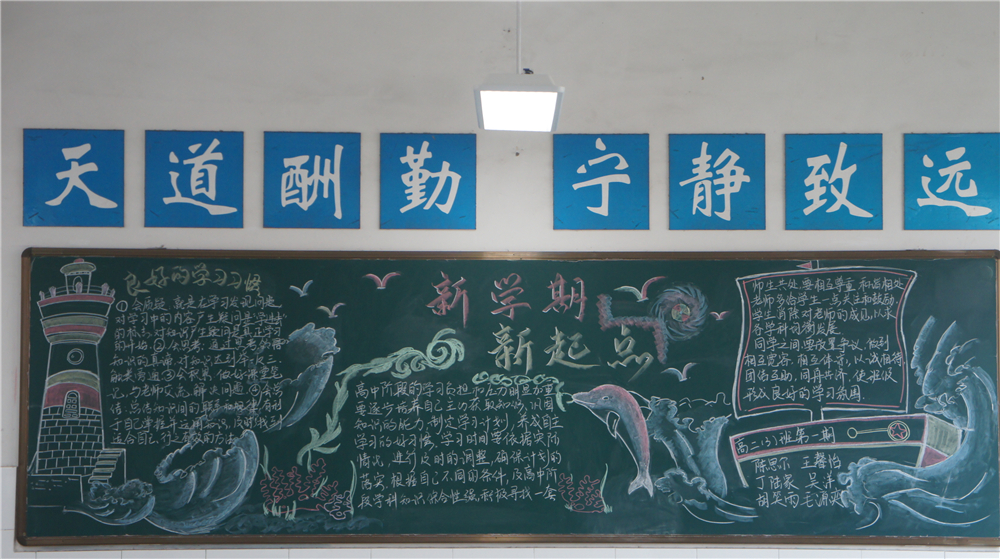 天道酬勤 宁静致远
良好的学习习惯
①会质疑 就是在学习发现问题
对学习中的内容产生疑问是学进去
的标志,对知识产生疑问是真正学习
的开始 ②会思考
知识的真谛,对知识达到举一反三
触类旁通 ③会积累 做好课堂笔
记,与老师交流,解决问题 ④会总
结
于自己掌握牢运用知识,及时找到
适合自己,行之有效的方法
新学期
新起点
高中阶段的学习自担和压力明显加重
要逐步培养自己主动获取知识,巩固
知识的能力,制定学习计划,养成自主
学习的好习惯,学习时间要依据实际
情况,进行及时的调整,确保计划的
落实,根据自己不同的条件,及高中阶
段学科知识综合性强,积极寻找一套
师生共处,要相互尊重 和谐相处
老师多给学生一点关注和鼓励
学生消除对老师的成见,以求
各学科均衡发展
同学之间要放置争议,做到
相互宽容,相互体谅,以诚相待
团结互助,同舟共济,使班级
形成良好的学习氛围
高二(3)班第一期
陈思尔 王馨怡
丁陆家 吴洋